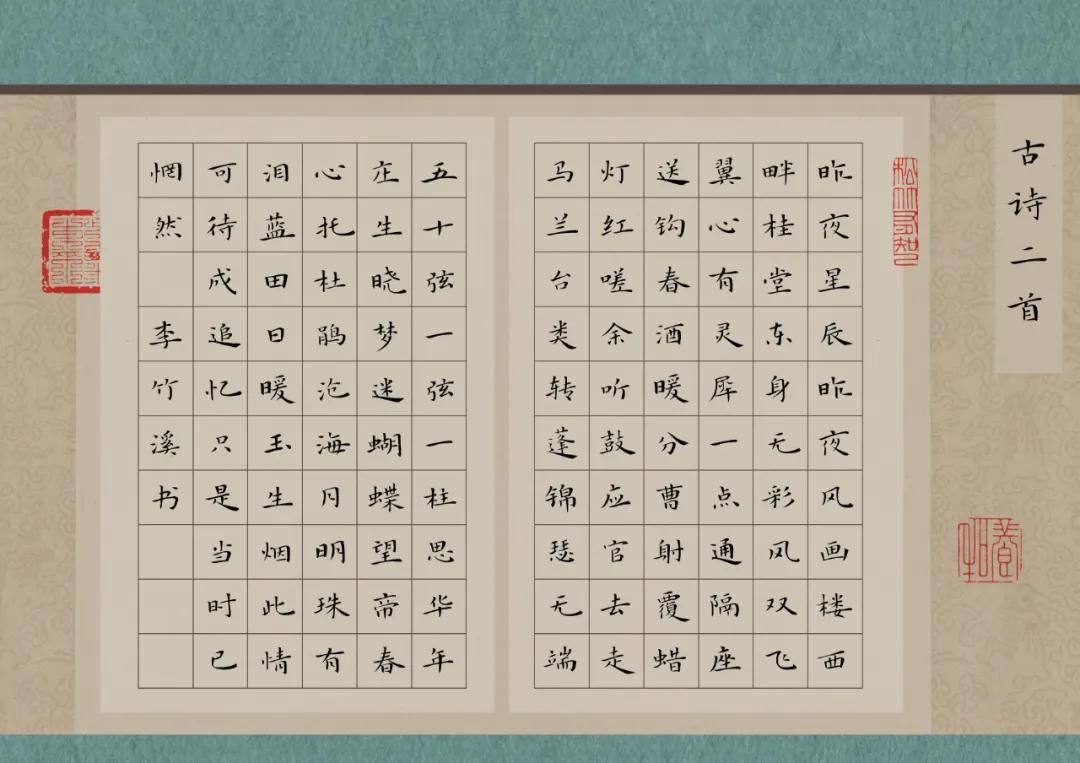 古诗二首
昨夜星辰昨夜风画楼西
畔桂堂东身无彩风双飞
翼心有灵犀一点通隔座
送钩春酒暖分曹射覆蜡
灯红嗟余听鼓应官去走
马兰台类转蓬锦瑟无端
五十弦一弦一柱思华年
庄生晓梦迷蝴蝶望帝春
心托杜鹃沧海月明珠有
泪蓝田日暖玉生烟此情
可待成追忆只是当时已
惘然 李竹溪书